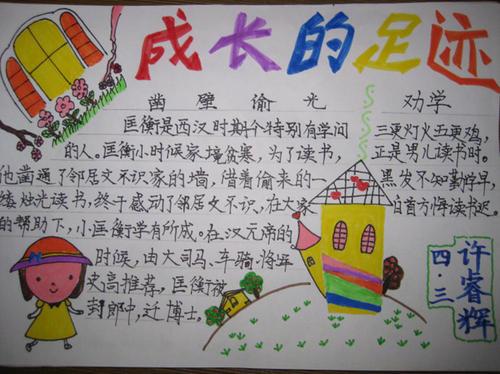 成长的足迹
凿壁偷光
匡衡是西汉时期个特别有学问
的人。匡衡小时候家境贫寒，为了读书，
他凿通了邻居文不识家的墙，借着偷来的一
缕烛光读书，终于感动了邻居文不识，在大家
的帮助下，小匡衡学有所成。在汉元帝的
时候，由大司马、车骑将军
史高推荐，匡衡被
封郎中，迁博士。
劝学
三更灯火五更鸡，
正是男儿读书时。
黑发不知勤学早，
白首方悔读书迟。
许睿辉
四·三